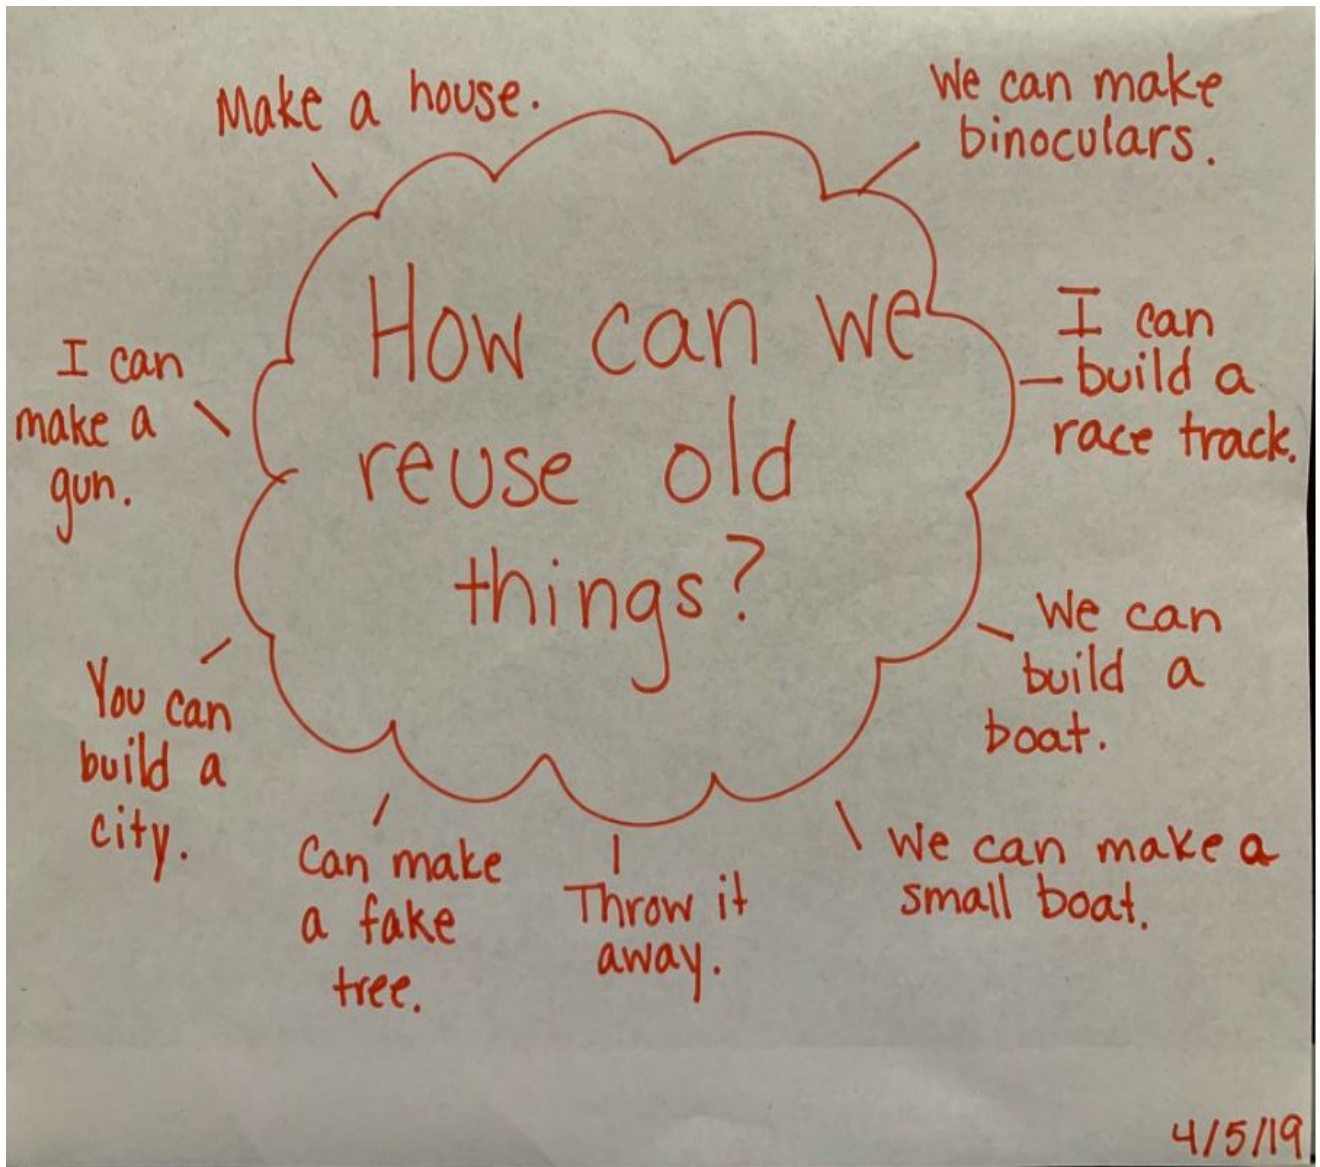 How can we
reuse old
things?
Make a house.
We can make
binoculars.
I can
build a
race track.
We can
build a
boat.
We can make a
small boat.
Throw it
away.
Can make
a fake
tree.
You can
build a
city.
I can
make a
gun.
4/5/19